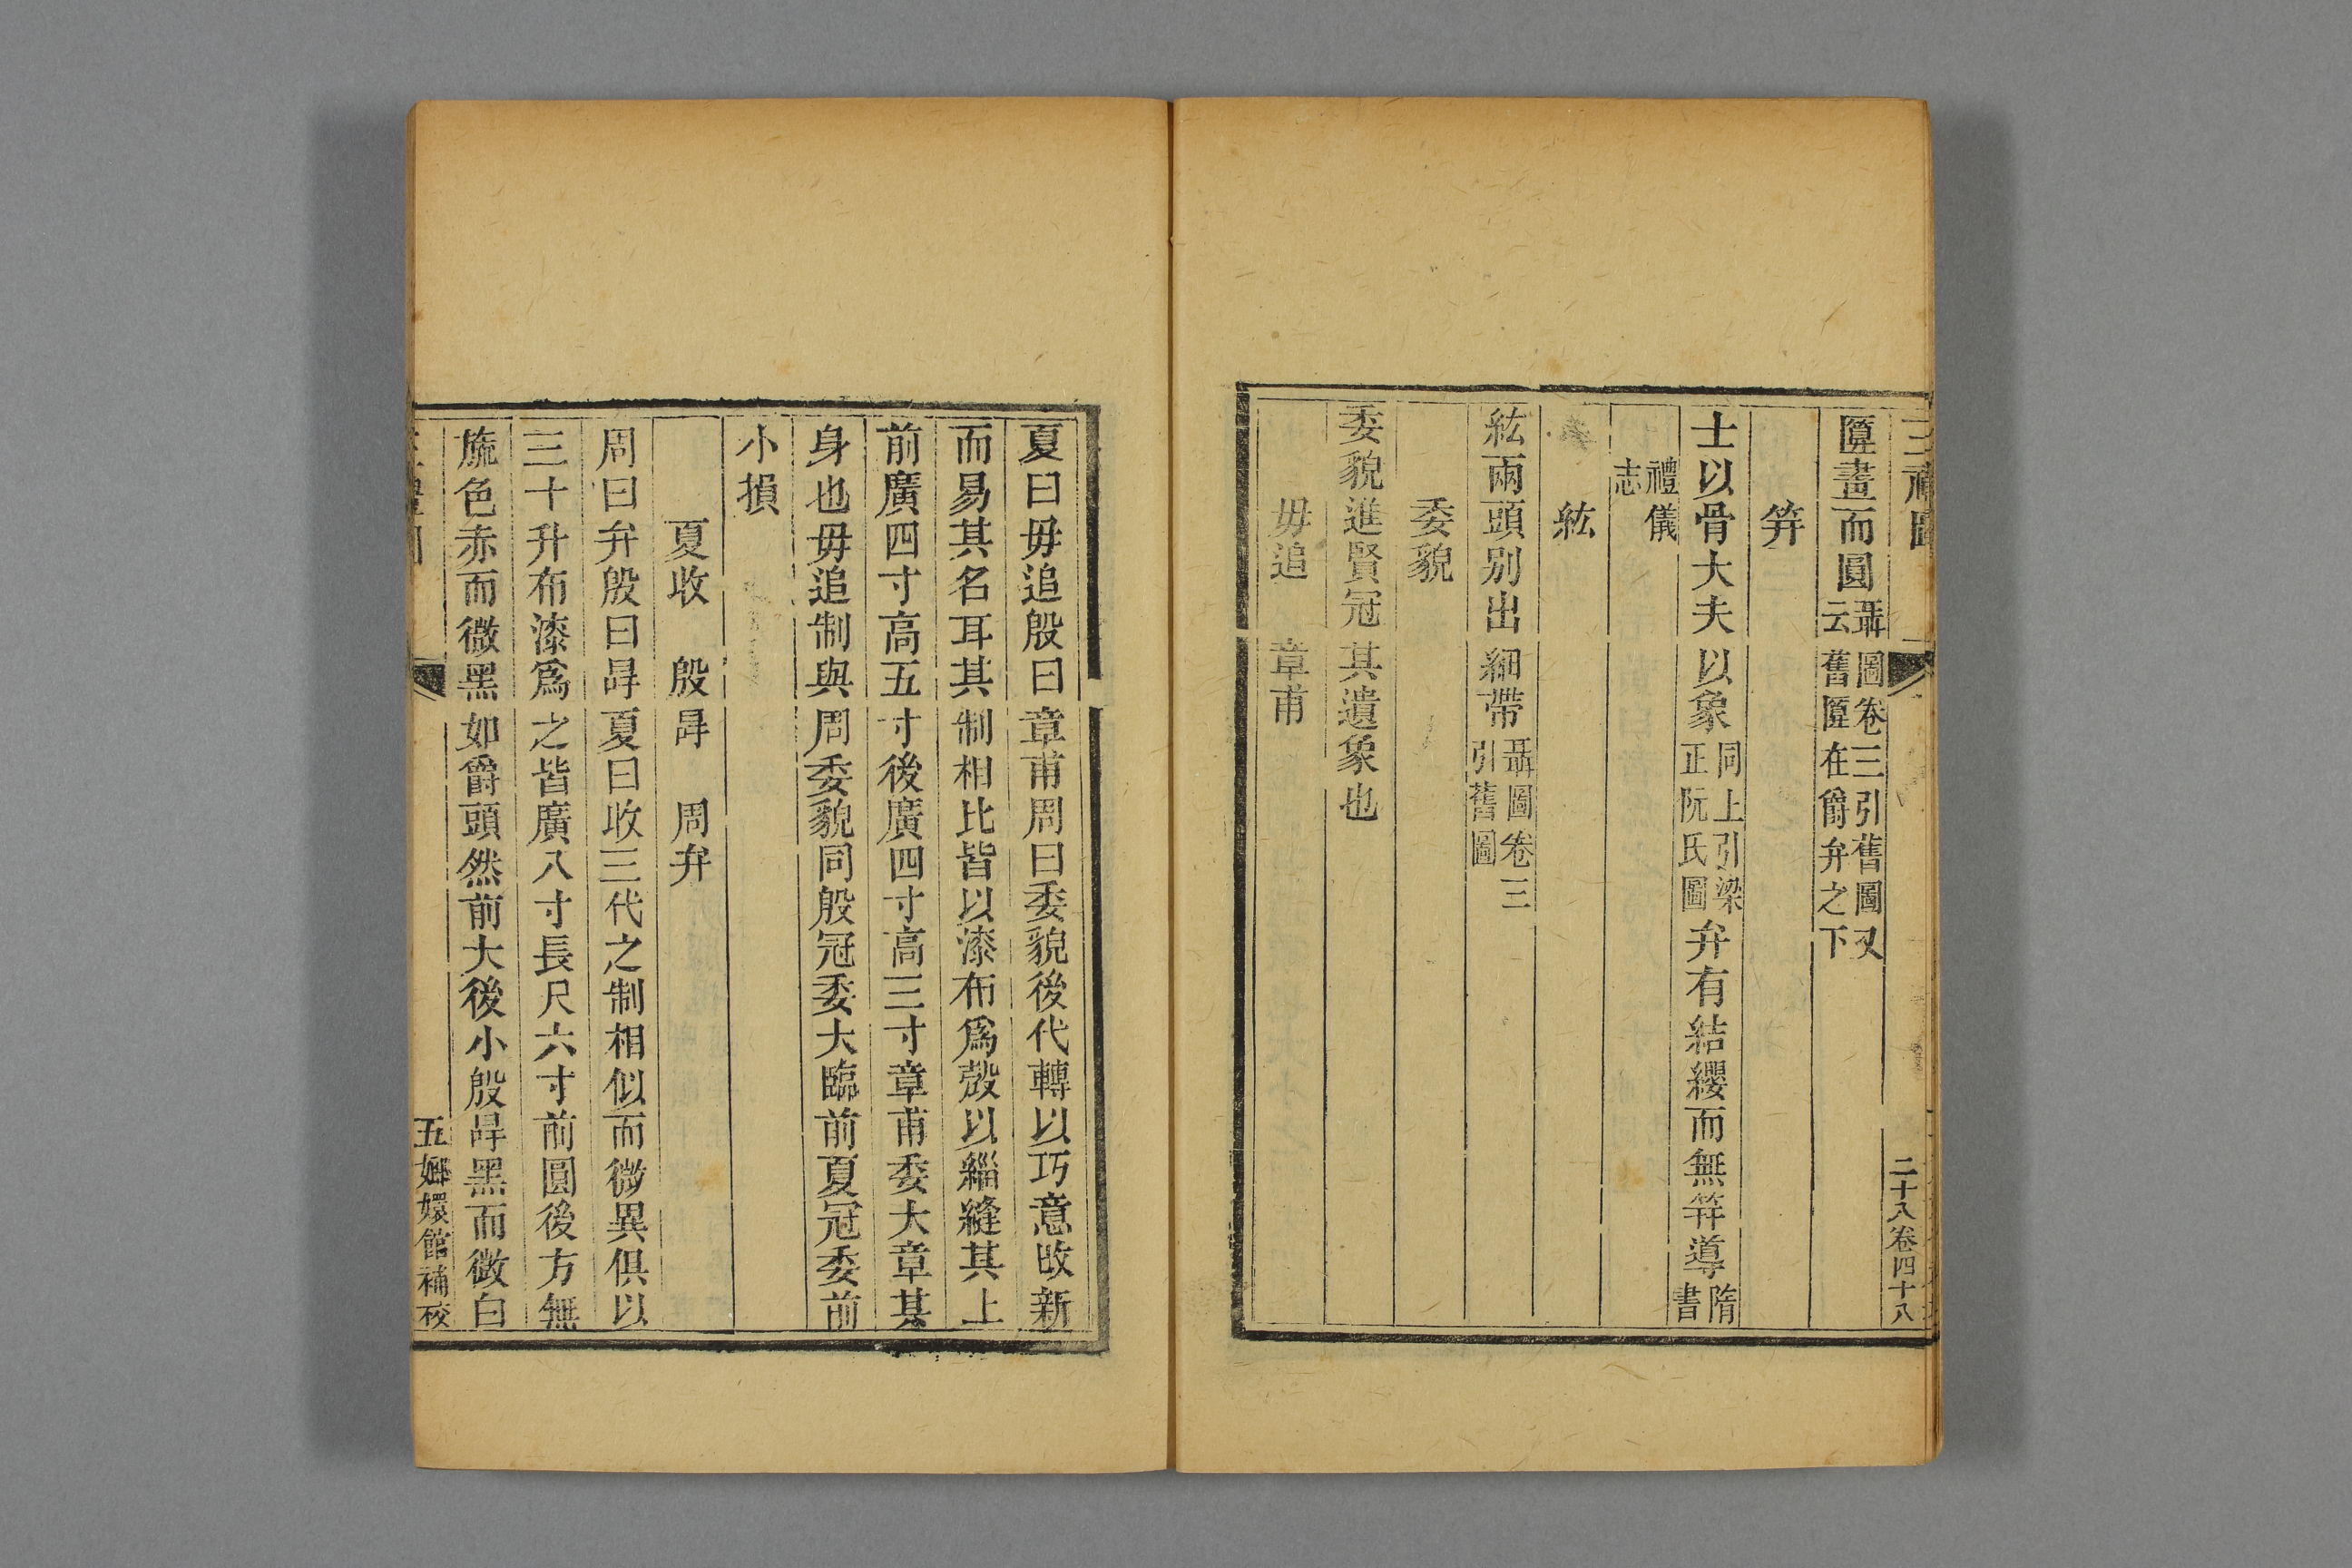 三禮圖
二十八卷四十八
匴畫而圓聶圖卷三引舊圖又
云舊匴在爵弁之下
笄
士以骨大夫以象同上引梁
正阮氏圖弁有結纓而無笄導隋
書
禮儀
志
紘
紘兩頭别出細帶聶圖卷三
引舊圖
委貌
委貌進賢冠其遺象也
毋追　章甫
夏曰毋追殷曰章甫周曰委貌後代轉以巧意改新
而易其名耳其制相比皆以漆布爲殼以緇縫其上
前廣四寸高五寸後廣四寸高三寸章甫委大章其
身也毋追制與周委貌同殷冠委大臨前夏冠委前
小損
夏收　殷冔　周弁
周曰弁殷曰冔夏曰收三代之制相似而微異俱以
三十升布漆爲之皆廣八寸長尺六寸前圓後方無
旒色赤而微黑如爵頭然前大後小殷冔黑而微白
三禮圖
五嫏嬛館補校